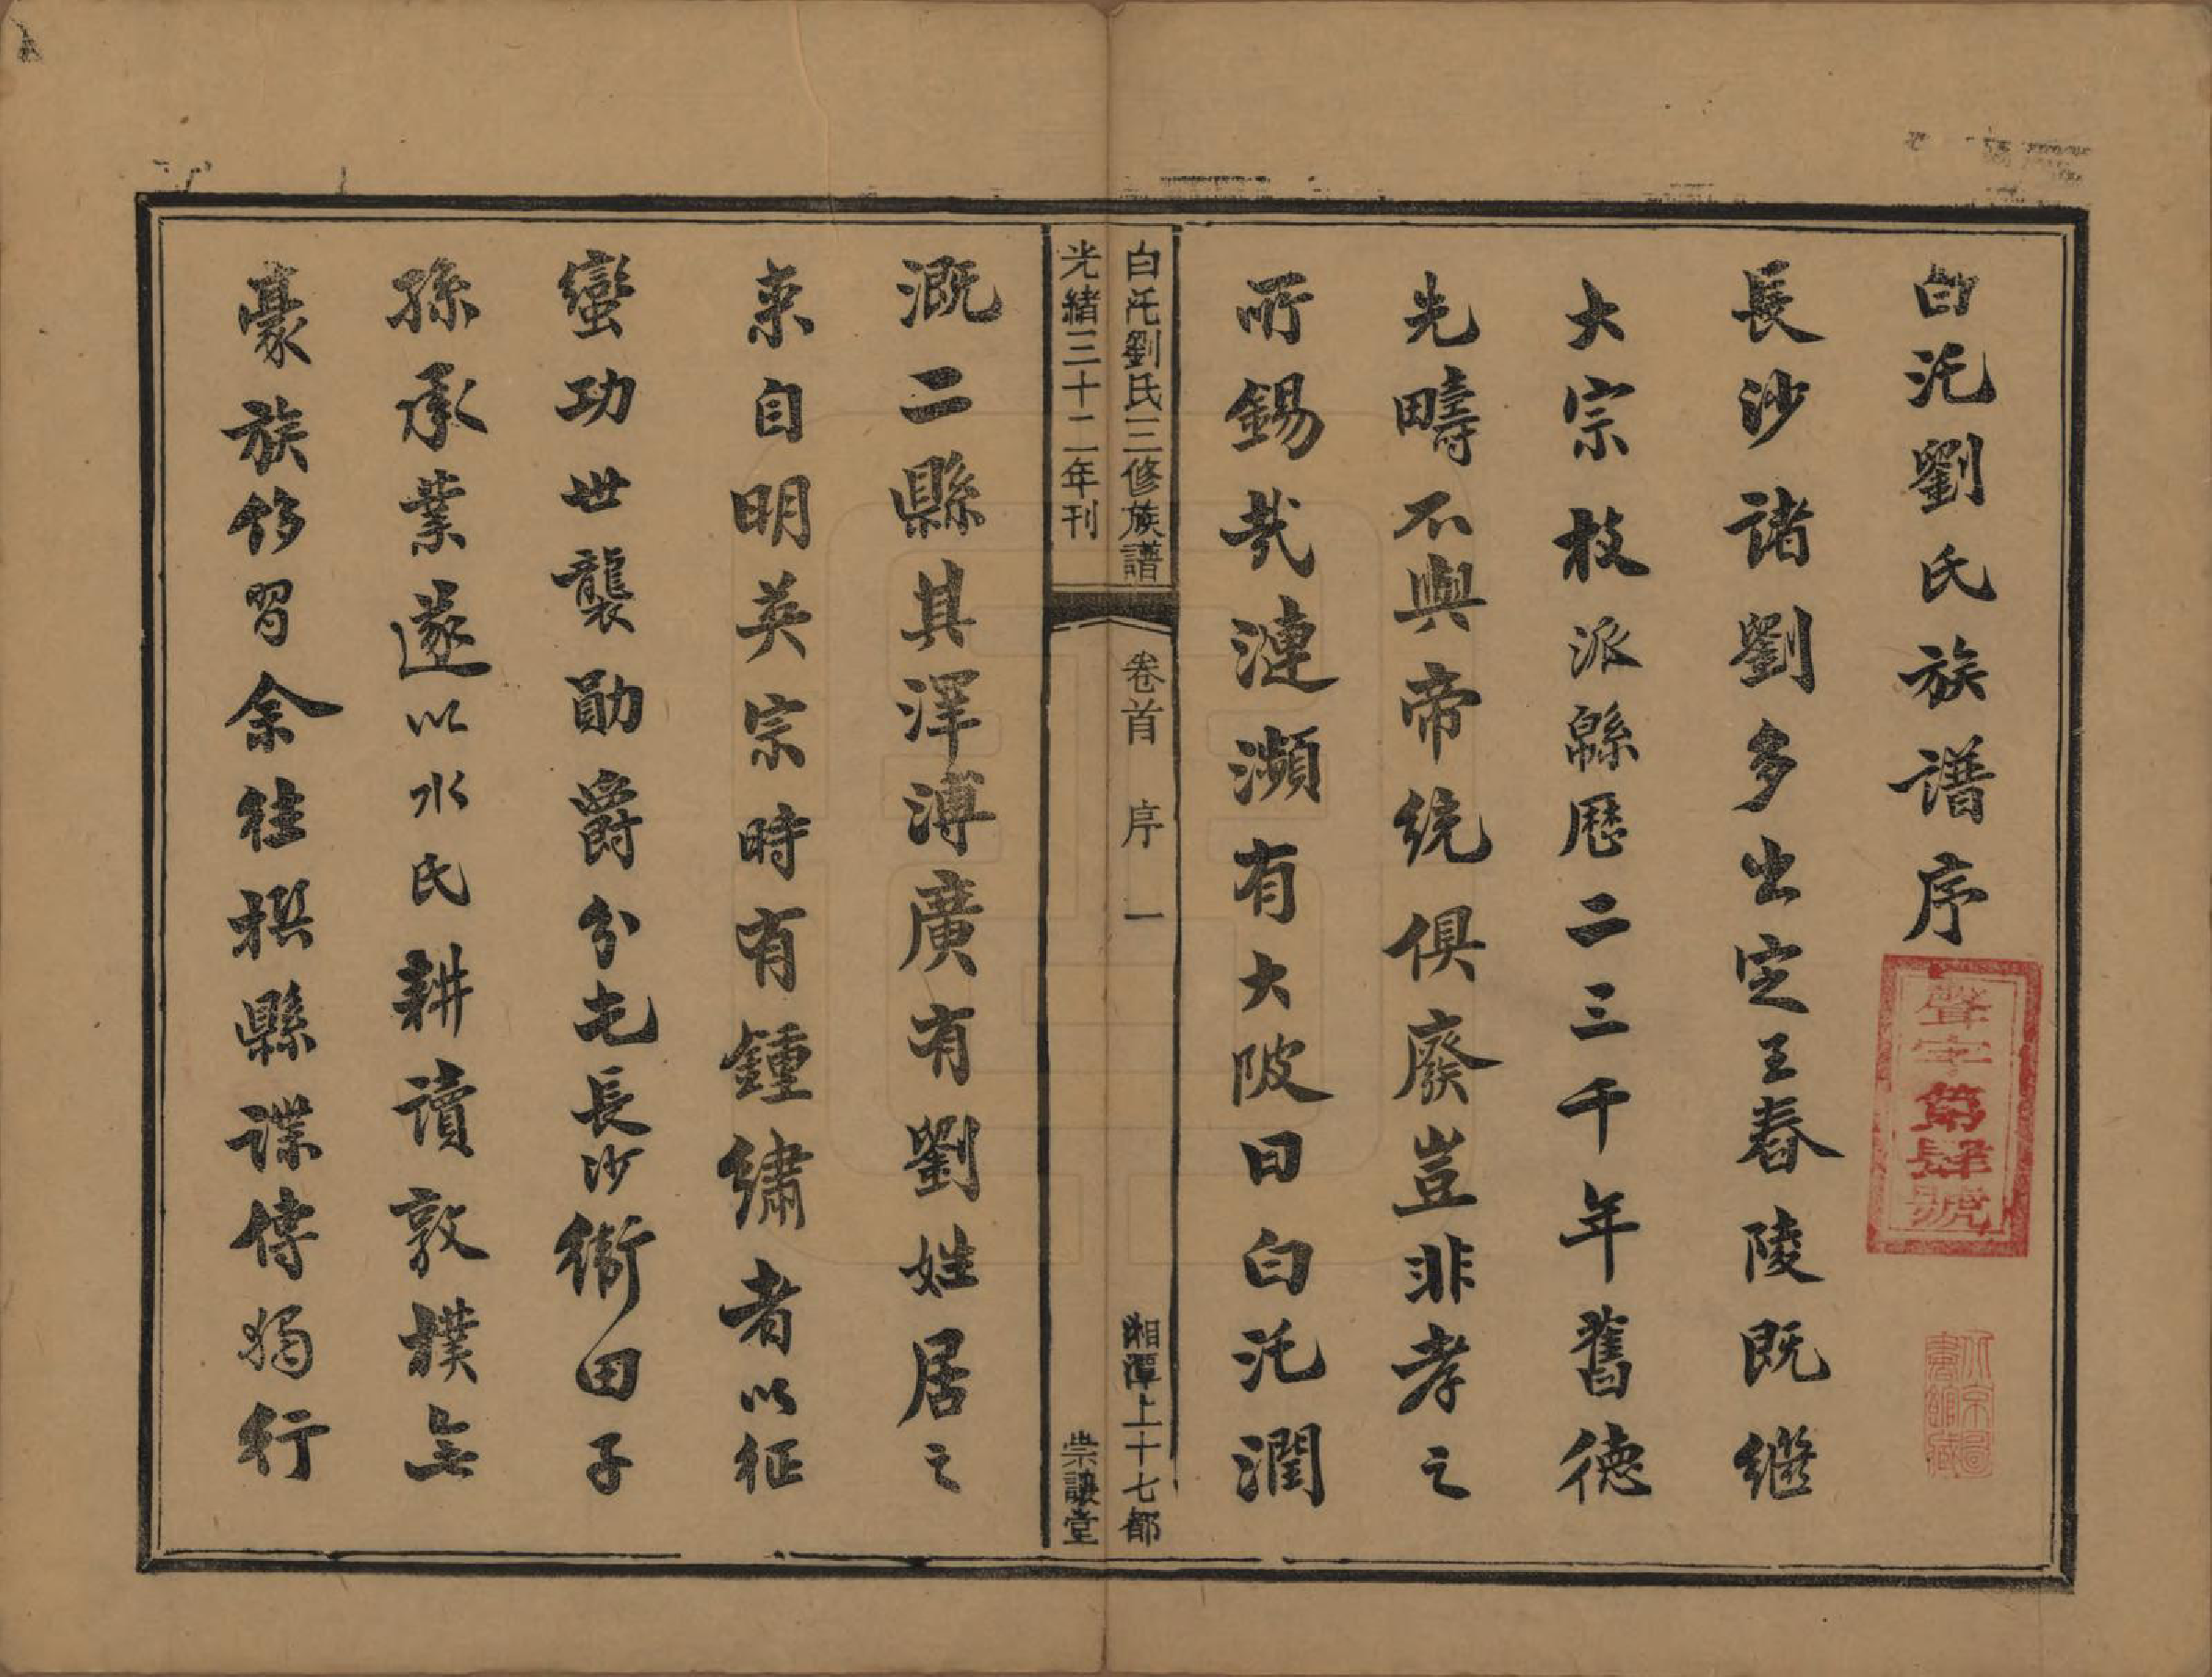 白沱劉氏族譜序
長沙諸劉多出定王舂陵既繼
大宗枝派緜歷二三千年舊德
先疇不與帝統俱廢豈非孝之
所錫哉漣瀕有大陂曰白沱潤
白沱劉氏三修族譜 卷首 序 一 湘潭上十七都
光緒三十二年刊 崇讓堂
溉二縣其澤溥廣有劉姓居之
來自明英宗時有鍾繡者以征
蠻功世襲勛爵分屯長沙衛田子
孫承業遂以水氏耕讀敦樸無
豪族侈習余往撰縣譜傳獨行
聲字第肆號
北京圖書館藏